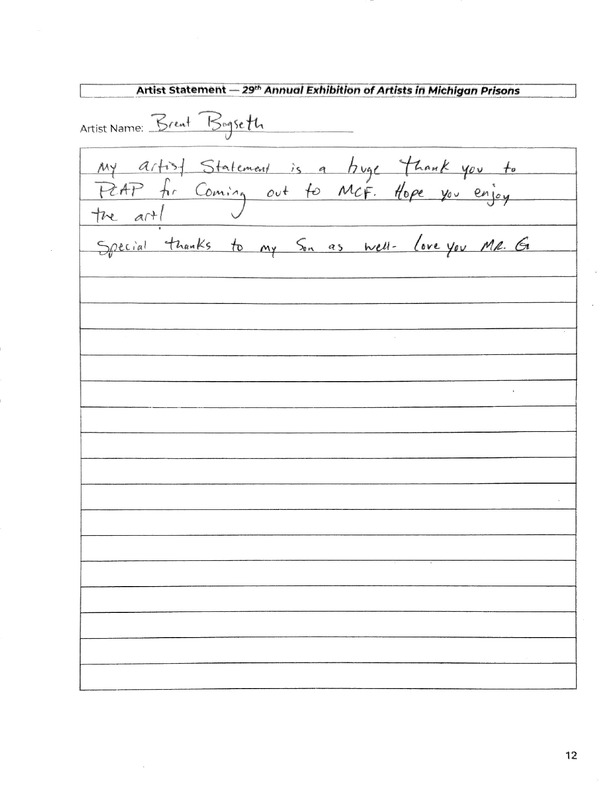 Artist Statement — 29th Annual Exhibition of Artists in Michigan Prisons
Artist Name: Brent Bagseth
My artist Statement is a huge thank you to
PCAP for Coming out to MCF. Hope you enjoy
the art!
Special thanks to my Son as well- love you MR. G
12